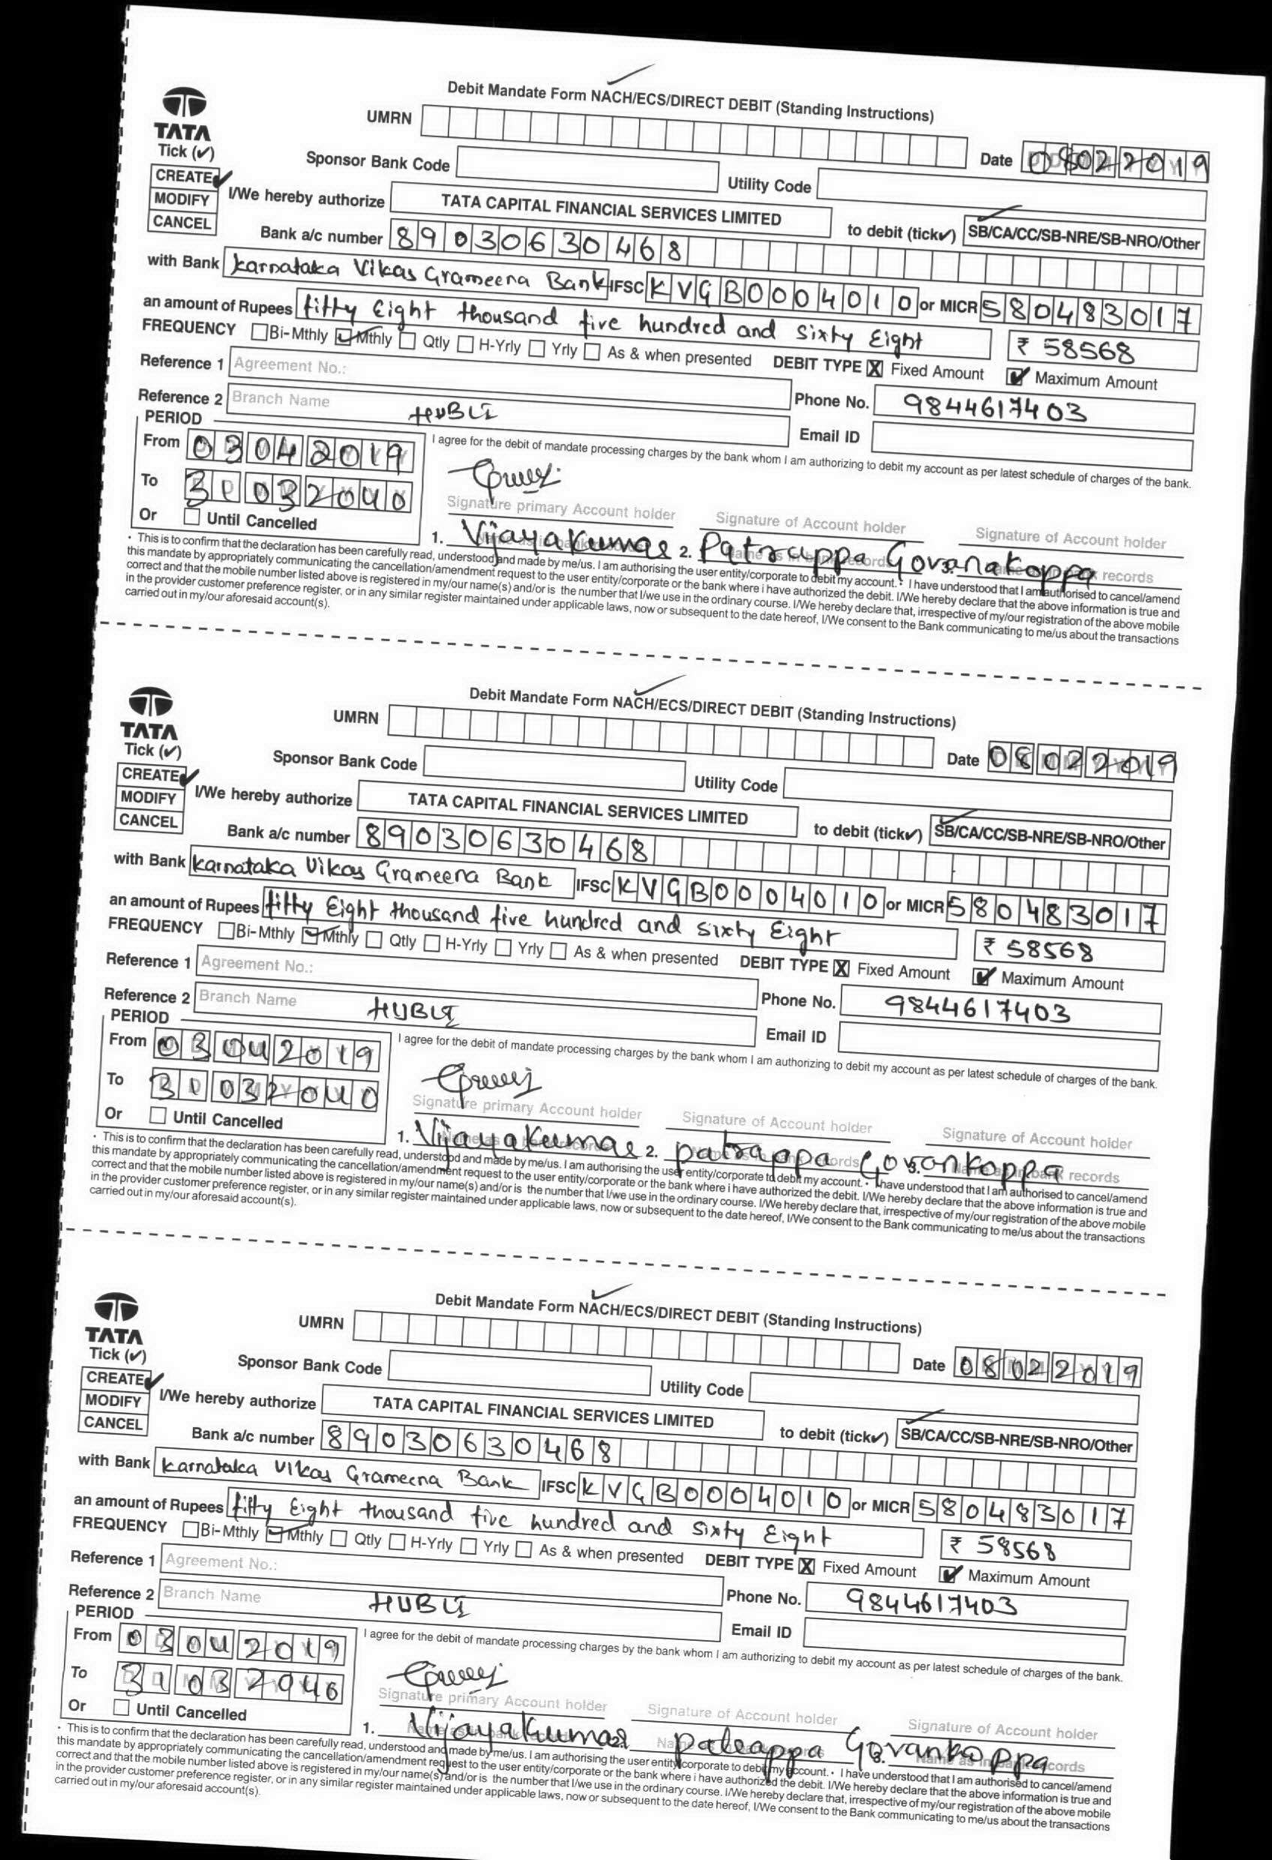 Debit Mandate Form NACH/ECS/DIRECT DEBIT (Standing Instructions)
TATA
UMRN
Date 08022019
Tick (✓)
Sponsor Bank Code
Utility Code
CREATE ✓
MODIFY
CANCEL
I/We hereby authorize TATA CAPITAL FINANCIAL SERVICES LIMITED to debit (tick✓) SB/CA/CC/SB-NRE/SB-NRO/Other
Bank a/c number 89030630468
with Bank Karnataka Vikas Grameena Bank IFSC KVGB0004010 or MICR 580483017
an amount of Rupees fifty Eight thousand five hundred and sixty Eight ₹ 58568
FREQUENCY Bi-Mthly Mthly Qtly H-Yrly Yrly As & when presented DEBIT TYPE X Fixed Amount ✓ Maximum Amount
Reference 1 Agreement No.: Phone No. 9844617403
Reference 2 Branch Name HUBLI Email ID
PERIOD
From 03042019
I agree for the debit of mandate processing charges by the bank whom I am authorizing to debit my account as per latest schedule of charges of the bank.
To 31032040
Signature primary Account holder Signature of Account holder Signature of Account holder
Or Until Cancelled
1. Vijayakumar 2. Patrappa Govankoppa
• This is to confirm that the declaration has been carefully read, understood and made by me/us. I am authorising the user entity/corporate to debit my account. • I have understood that I am authorised to cancel/amend
this mandate by appropriately communicating the cancellation/amendment request to the user entity/corporate or the bank where i have authorized the debit. I/We hereby declare that the above information is true and
correct and that the mobile number listed above is registered in my/our name(s) and/or is the number that I/we use in the ordinary course. I/We hereby declare that, irrespective of my/our registration of the above mobile
in the provider customer preference register, or in any similar register maintained under applicable laws, now or subsequent to the date hereof, I/We consent to the Bank communicating to me/us about the transactions
carried out in my/our aforesaid account(s).
Debit Mandate Form NACH/ECS/DIRECT DEBIT (Standing Instructions)
TATA
UMRN
Date 08022019
Tick (✓)
Sponsor Bank Code
Utility Code
CREATE ✓
MODIFY
CANCEL
I/We hereby authorize TATA CAPITAL FINANCIAL SERVICES LIMITED to debit (tick✓) SB/CA/CC/SB-NRE/SB-NRO/Other
Bank a/c number 89030630468
with Bank Karnataka Vikas Grameena Bank IFSC KVGB0004010 or MICR 580483017
an amount of Rupees fifty Eight thousand five hundred and sixty Eight ₹ 58568
FREQUENCY Bi-Mthly Mthly Qtly H-Yrly Yrly As & when presented DEBIT TYPE X Fixed Amount ✓ Maximum Amount
Reference 1 Agreement No.: Phone No. 9844617403
Reference 2 Branch Name HUBLI Email ID
PERIOD
From 03042019
I agree for the debit of mandate processing charges by the bank whom I am authorizing to debit my account as per latest schedule of charges of the bank.
To 31032040
Signature primary Account holder Signature of Account holder Signature of Account holder
Or Until Cancelled
1. Vijayakumar 2. patrappa Govankoppa
• This is to confirm that the declaration has been carefully read, understood and made by me/us. I am authorising the user entity/corporate to debit my account. • I have understood that I am authorised to cancel/amend
this mandate by appropriately communicating the cancellation/amendment request to the user entity/corporate or the bank where i have authorized the debit. I/We hereby declare that the above information is true and
correct and that the mobile number listed above is registered in my/our name(s) and/or is the number that I/we use in the ordinary course. I/We hereby declare that, irrespective of my/our registration of the above mobile
in the provider customer preference register, or in any similar register maintained under applicable laws, now or subsequent to the date hereof, I/We consent to the Bank communicating to me/us about the transactions
carried out in my/our aforesaid account(s).
Debit Mandate Form NACH/ECS/DIRECT DEBIT (Standing Instructions)
TATA
UMRN
Date 08022019
Tick (✓)
Sponsor Bank Code
Utility Code
CREATE ✓
MODIFY
CANCEL
I/We hereby authorize TATA CAPITAL FINANCIAL SERVICES LIMITED to debit (tick✓) SB/CA/CC/SB-NRE/SB-NRO/Other
Bank a/c number 89030630468
with Bank Karnataka Vikas Grameena Bank IFSC KVGB0004010 or MICR 580483017
an amount of Rupees fifty Eight thousand five hundred and sixty Eight ₹ 58568
FREQUENCY Bi-Mthly Mthly Qtly H-Yrly Yrly As & when presented DEBIT TYPE X Fixed Amount ✓ Maximum Amount
Reference 1 Agreement No.: Phone No. 9844617403
Reference 2 Branch Name HUBLI Email ID
PERIOD
From 03042019
I agree for the debit of mandate processing charges by the bank whom I am authorizing to debit my account as per latest schedule of charges of the bank.
To 3103
Signature primary Account holder Signature of Account holder Signature of Account holder
Or Until Cancelled
1. Vijayakumar 2. Govankoppa
• This is to confirm that the declaration has been carefully read, understood and made by me/us. I am authorising the user entity/corporate to debit my account. • I have understood that I am authorised to cancel/amend
this mandate by appropriately communicating the cancellation/amendment request to the user entity/corporate or the bank where i have authorized the debit. I/We hereby declare that the above information is true and
correct and that the mobile number listed above is registered in my/our name(s) and/or is the number that I/we use in the ordinary course. I/We hereby declare that, irrespective of my/our registration of the above mobile
in the provider customer preference register, or in any similar register maintained under applicable laws, now or subsequent to the date hereof, I/We consent to the Bank communicating to me/us about the transactions
carried out in my/our aforesaid account(s).